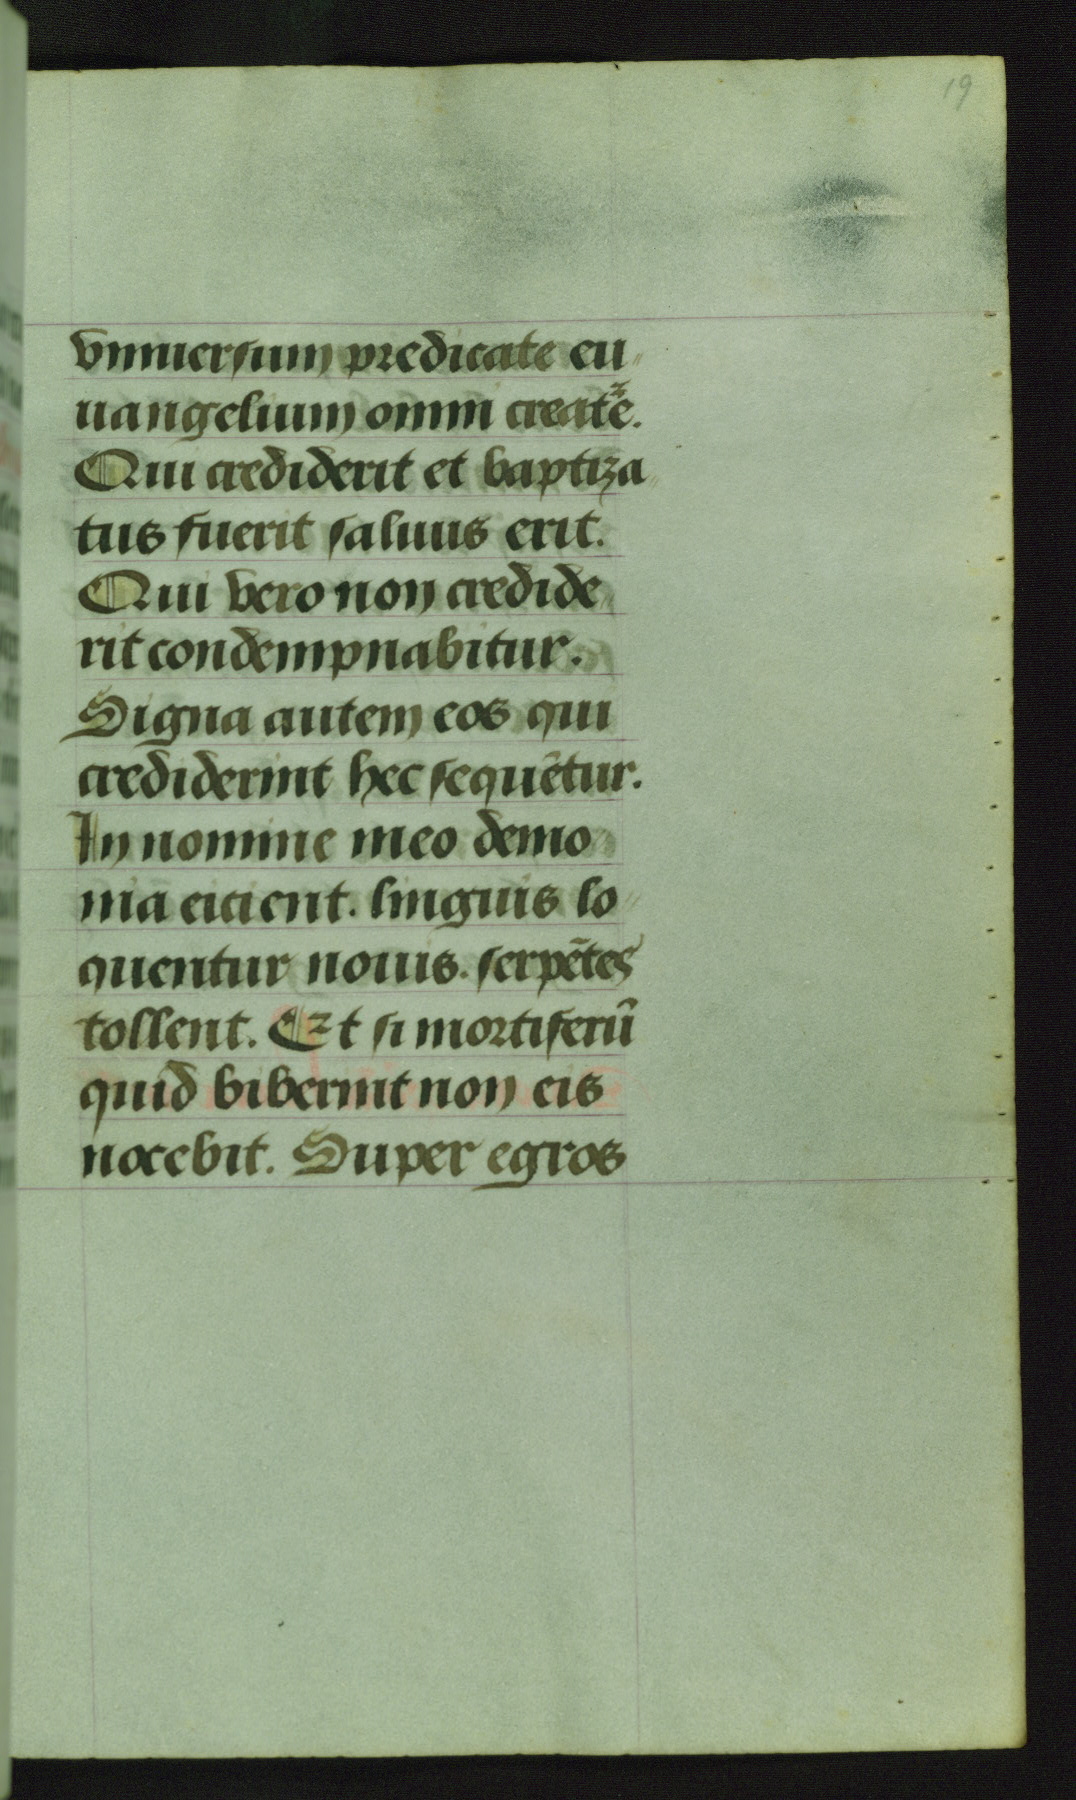 19
vniuersum predicate eu
uangelium omni creat᷑e.
Qui crediderit et baptiza
tus fuerit saluus erit.
Qui vero non credide
rit condempnabitur.
Signa autem eos qui
crediderint hec sequētur.
In nomine meo demo
nia eicient. linguis lo
quentur nouis. serpētes
tollent. Et si mortiferū
quid biberint non eis
nocebit. Super egros